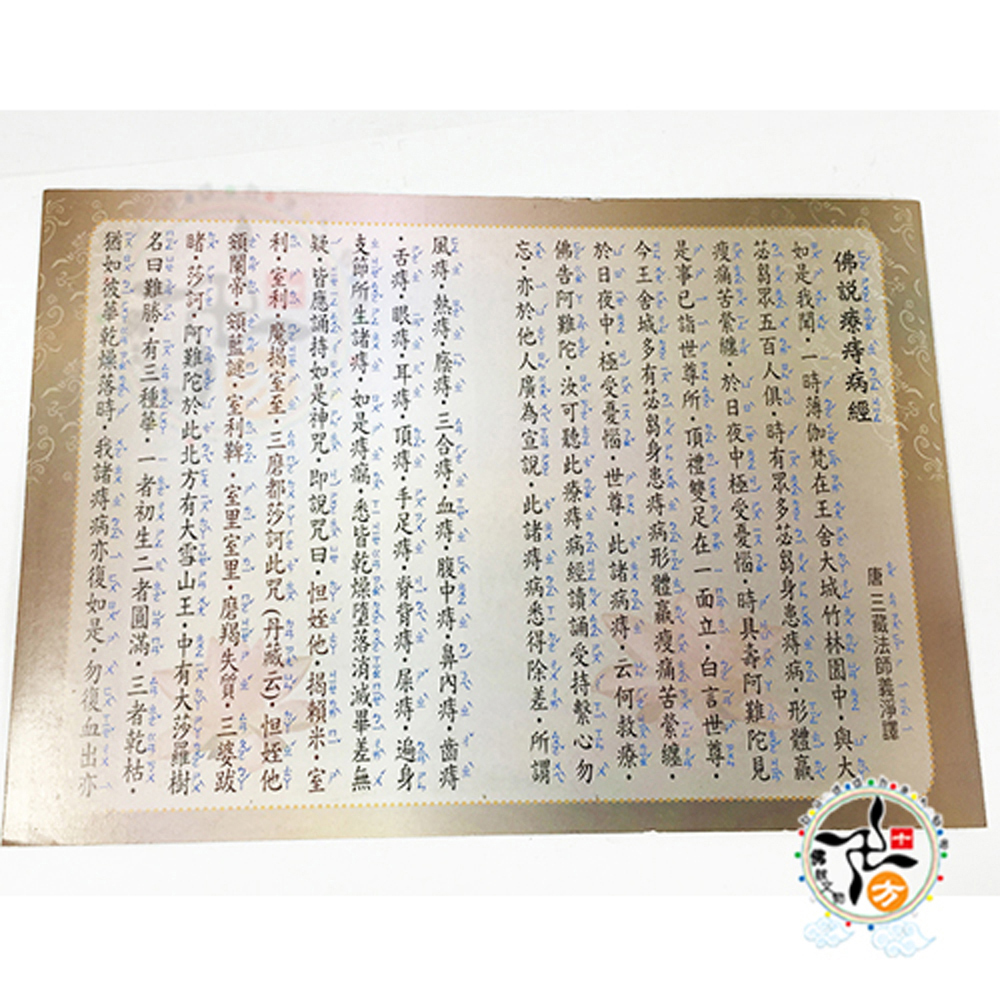 佛說療痔病經
唐三藏法師義淨譯
如是我聞．一時薄伽梵在王舍大城竹林園中．與大
苾芻眾五百人俱．時有眾多苾芻身患痔病．形體羸
瘦痛苦縈纏．於日夜中極受憂惱．時具壽阿難陀見
是事已詣世尊所．頂禮雙足在一面立．白言世尊．
今王舍城多有苾芻身患痔病形體羸瘦痛苦縈纏．
於日夜中．極受憂惱．世尊．此諸病痔．云何救療．
佛告阿難陀．汝可聽此療痔病經讀誦受持繫心勿
忘．亦於他人廣為宣說．此諸痔病悉得除差．所謂
風痔．熱痔．癊痔．三合痔．血痔．腹中痔．鼻內痔．齒痔
．舌痔．眼痔．耳痔．頂痔．手足痔．脊背痔．屎痔．遍身
支節所生諸痔．如是痔瘺．悉皆乾燥墮落消滅畢差無
疑．皆應誦持如是神咒．即說咒曰．怛姪他．揭賴米．室
利．室利．魔揭室至．三磨都莎訶此咒（丹藏云）．怛姪他
頞闌帝．頞藍謎．室利鞞．室里室里．磨羯失質．三婆跋
睹．莎訶．阿難陀於此北方有大雪山王．中有大莎羅樹
名曰難勝．有三種華．一者初生二者圓滿．三者乾枯．
猶如彼華乾燥落時．我諸痔病亦復如是．勿復血出亦
卍
十
方
佛教文物